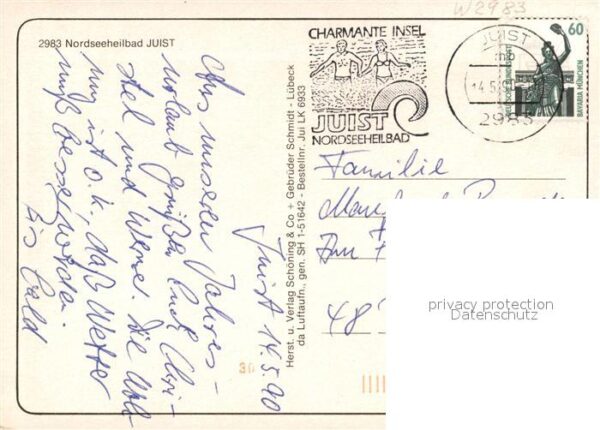 W2983
2983 Nordseeheilbad JUIST
CHARMANTE INSEL
JUIST
NORDSEEHEILBAD
JUIST
mb
14.5.
2983
60
DEUTSCHE BUNDESPOST
BAVARIA MÜNCHEN
Herst. u. Verlag Schöning & Co + Gebrüder Schmidt - Lübeck
da Luftaufn., gen. SH 1-51642 - Bestellnr. Jui LK 6933
Juist 14.5.90
Aus unserem Jahres-
urlaub grüßen Euch Chri-
stel und Werner. Die Woh-
nung ist o.k., daß Wetter
muß besser werden.
Bis bald
Familie
48
privacy protection
Datenschutz